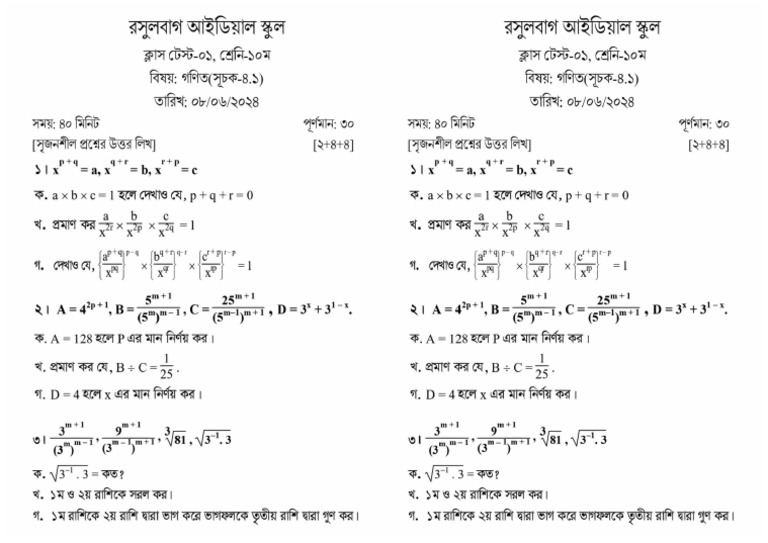 রসুলবাগ আইডিয়াল স্কুল
ক্লাস টেস্ট-০১, শ্রেনি-১০ম
বিষয়: গণিত(সূচক-৪.১)
তারিখ: ০৮/০৬/২০২৪
সময়: ৪০ মিনিট পূর্ণমান: ৩০
[সৃজনশীল প্রশ্নের উত্তর লিখ] [২+৪+৪]
১। x^{p+q} = a, x^{q+r} = b, x^{r+p} = c
ক. a × b × c = 1 হলে দেখাও যে, p + q + r = 0
খ. প্রমাণ কর a/x^{2r} × b/x^{2p} × c/x^{2q} = 1
গ. দেখাও যে, {a^{p+q}/x^{pq}}^{p-q} × {b^{q+r}/x^{qr}}^{q-r} × {c^{r+p}/x^{rp}}^{r-p} = 1
২। A = 4^{2p+1}, B = 5^{m+1}/(5^m)^{m-1}, C = 25^{m+1}/(5^{m-1})^{m+1}, D = 3^x + 3^{1-x}.
ক. A = 128 হলে P এর মান নির্ণয় কর।
খ. প্রমাণ কর যে, B ÷ C = 1/25 .
গ. D = 4 হলে x এর মান নির্ণয় কর।
৩। 3^{m+1}/(3^m)^{m-1}, 9^{m+1}/(3^{m-1})^{m+1}, ∛81, √(3^{-1}. 3)
ক. √(3^{-1} . 3) = কত?
খ. ১ম ও ২য় রাশিকে সরল কর।
গ. ১ম রাশিকে ২য় রাশি দ্বারা ভাগ করে ভাগফলকে তৃতীয় রাশি দ্বারা গুণ কর।
রসুলবাগ আইডিয়াল স্কুল
ক্লাস টেস্ট-০১, শ্রেনি-১০ম
বিষয়: গণিত(সূচক-৪.১)
তারিখ: ০৮/০৬/২০২৪
সময়: ৪০ মিনিট পূর্ণমান: ৩০
[সৃজনশীল প্রশ্নের উত্তর লিখ] [২+৪+৪]
১। x^{p+q} = a, x^{q+r} = b, x^{r+p} = c
ক. a × b × c = 1 হলে দেখাও যে, p + q + r = 0
খ. প্রমাণ কর a/x^{2r} × b/x^{2p} × c/x^{2q} = 1
গ. দেখাও যে, {a^{p+q}/x^{pq}}^{p-q} × {b^{q+r}/x^{qr}}^{q-r} × {c^{r+p}/x^{rp}}^{r-p} = 1
২। A = 4^{2p+1}, B = 5^{m+1}/(5^m)^{m-1}, C = 25^{m+1}/(5^{m-1})^{m+1}, D = 3^x + 3^{1-x}.
ক. A = 128 হলে P এর মান নির্ণয় কর।
খ. প্রমাণ কর যে, B ÷ C = 1/25 .
গ. D = 4 হলে x এর মান নির্ণয় কর।
৩। 3^{m+1}/(3^m)^{m-1}, 9^{m+1}/(3^{m-1})^{m+1}, ∛81, √(3^{-1}. 3)
ক. √(3^{-1} . 3) = কত?
খ. ১ম ও ২য় রাশিকে সরল কর।
গ. ১ম রাশিকে ২য় রাশি দ্বারা ভাগ করে ভাগফলকে তৃতীয় রাশি দ্বারা গুণ কর।